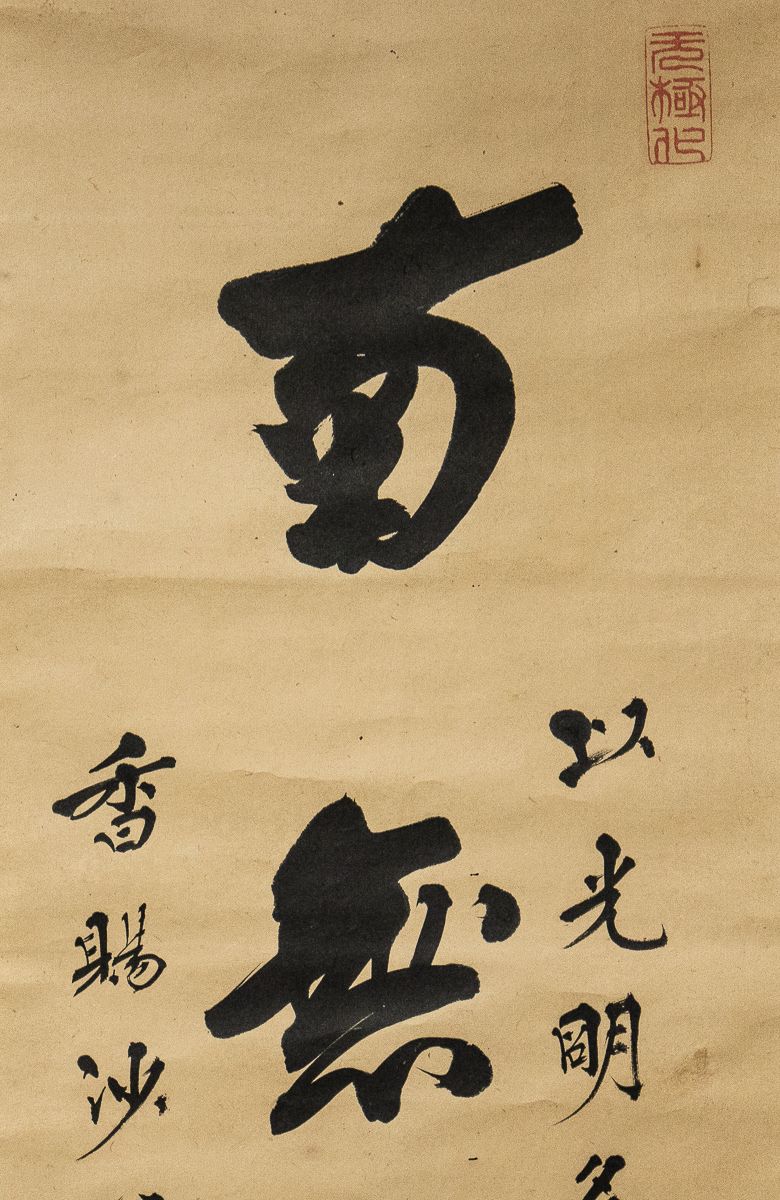 以光明名
南無
香賜沙